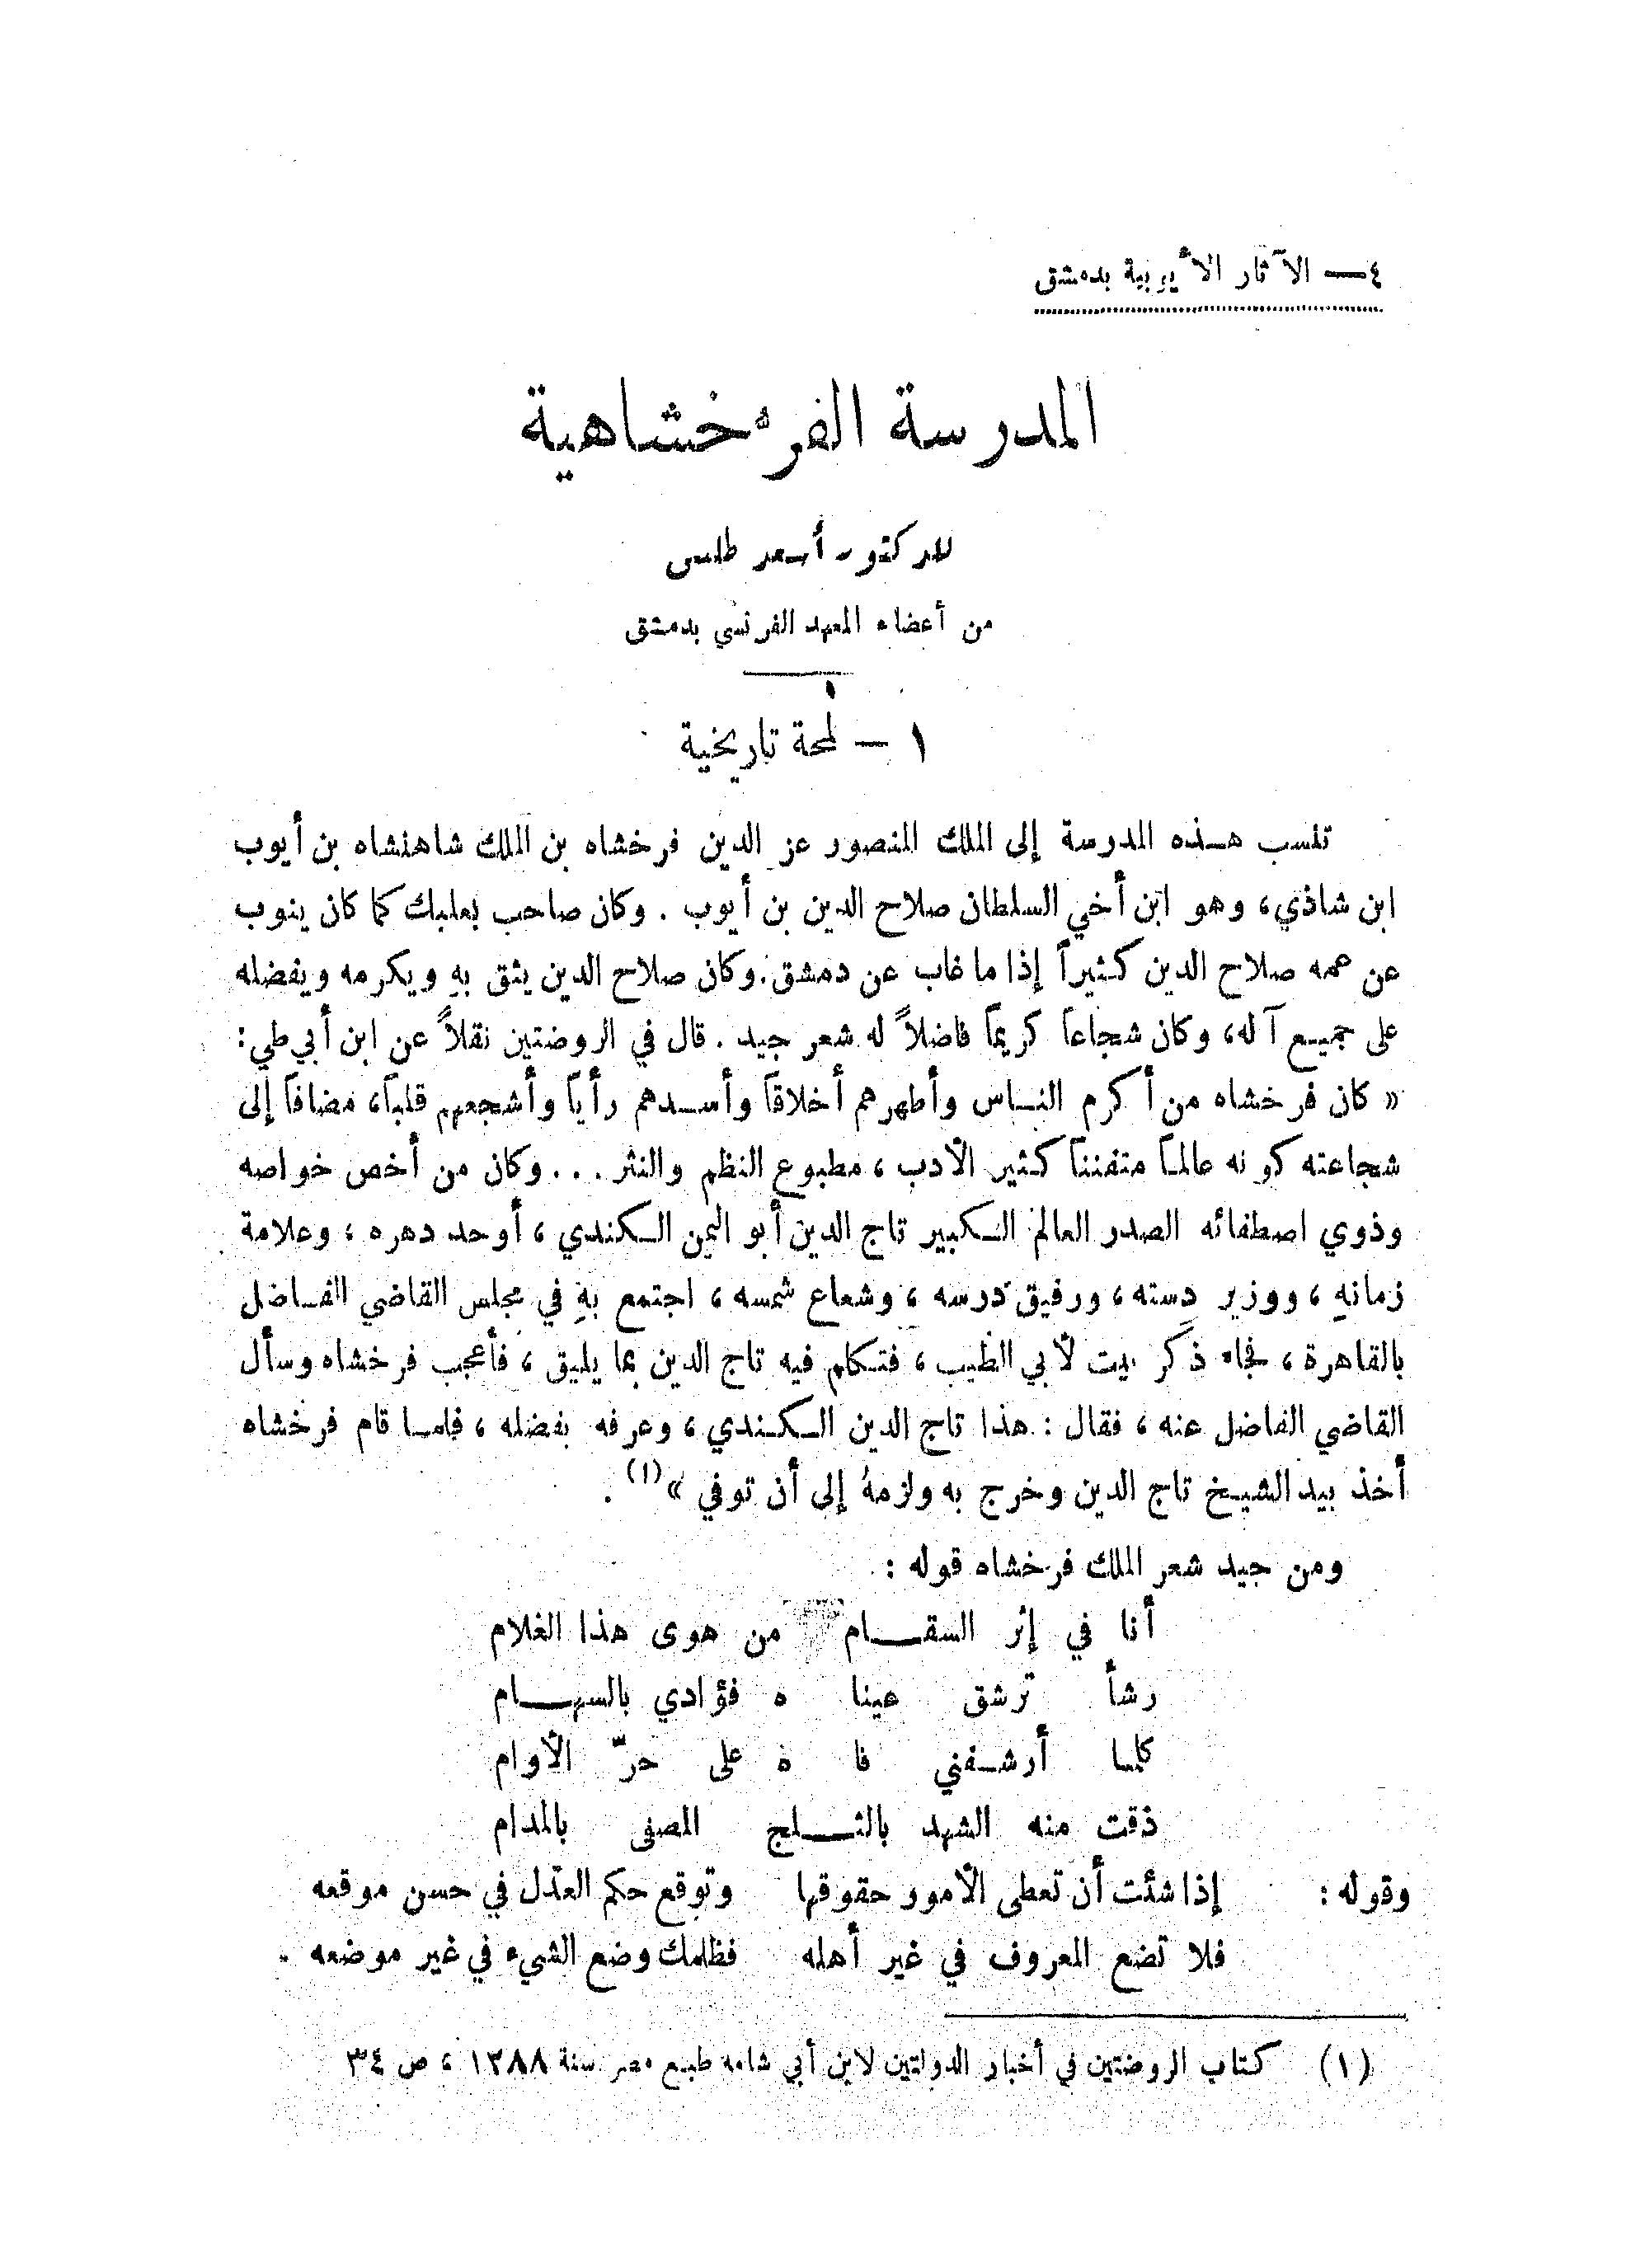 ٤ — الآثار الأيوبية بدمشق
المدرسة الفرخشاهية
للدكتور أسعد طلس
من أعضاء المعهد الفرنسي بدمشق
١ — لمحة تاريخية
تنسب هذه المدرسة إلى الملك المنصور عز الدين فرخشاه بن الملك شاهنشاه بن أيوب
ابن شاذي، وهو ابن أخي السلطان صلاح الدين بن أيوب . وكان صاحب بعلبك كما كان ينوب
عن عمه صلاح الدين كثيراً إذا ما غاب عن دمشق. وكان صلاح الدين يثق بهِ ويكرمه ويفضله
على جميع آله، وكان شجاعاً كريماً فاضلاً له شعر جيد . قال في الروضتين نقلاً عن ابن أبي طي:
« كان فرخشاه من أكرم الناس وأطهرهم أخلاقاً وأسدهم رأياً وأشجعهم قلباً، مضافاً إلى
شجاعته كونه عالماً متفنناً كثير الأدب ، مطبوع النظم والنثر . . . وكان من أخص خواصه
وذوي اصطفائه الصدر العالم الكبير تاج الدين أبو اليمن الكندي ، أوحد دهره ، وعلامة
زمانهِ ، ووزير دسته ، ورفيق درسه ، وشعاع شمسه ، اجتمع بهِ في مجلس القاضي الفاضل
بالقاهرة ، فجاء ذكر بيت لأبي الطيب ، فتكلم فيه تاج الدين بما يليق ، فأعجب فرخشاه وسأل
القاضي الفاضل عنه ، فقال : هذا تاج الدين الكندي ، وعرفه بفضله ، فلما قام فرخشاه
أخذ بيد الشيخ تاج الدين وخرج به ولزمهُ إلى أن توفي »(١) .
ومن جيد شعر الملك فرخشاه قوله :
أنا في إثر السقام من هوى هذا الغلام
رشأ ترشق عينا ه فؤادي بالسهام
كلما أرشفني فا ه على حرّ الأوام
ذقت منه الشهد بالثلج المصفى بالمدام
وقوله : إذا شئت أن تعطى الأمور حقوقها وتوقع حكم العدل في حسن موقعه
فلا تضع المعروف في غير أهله فظلمك وضع الشيء في غير موضعه .
(١) كتاب الروضتين في أخبار الدولتين لابن أبي شامه طبع مصر سنة ١٢٨٨ ، ص ٣٤